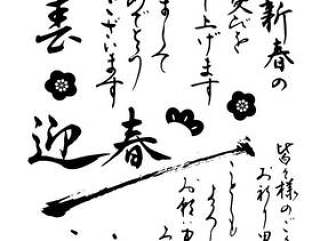 新春の
びを
上げます
まして
めでとう
ございます
迎春
皆々様のご
お祈り申
ことしも
よろしく
お願い申